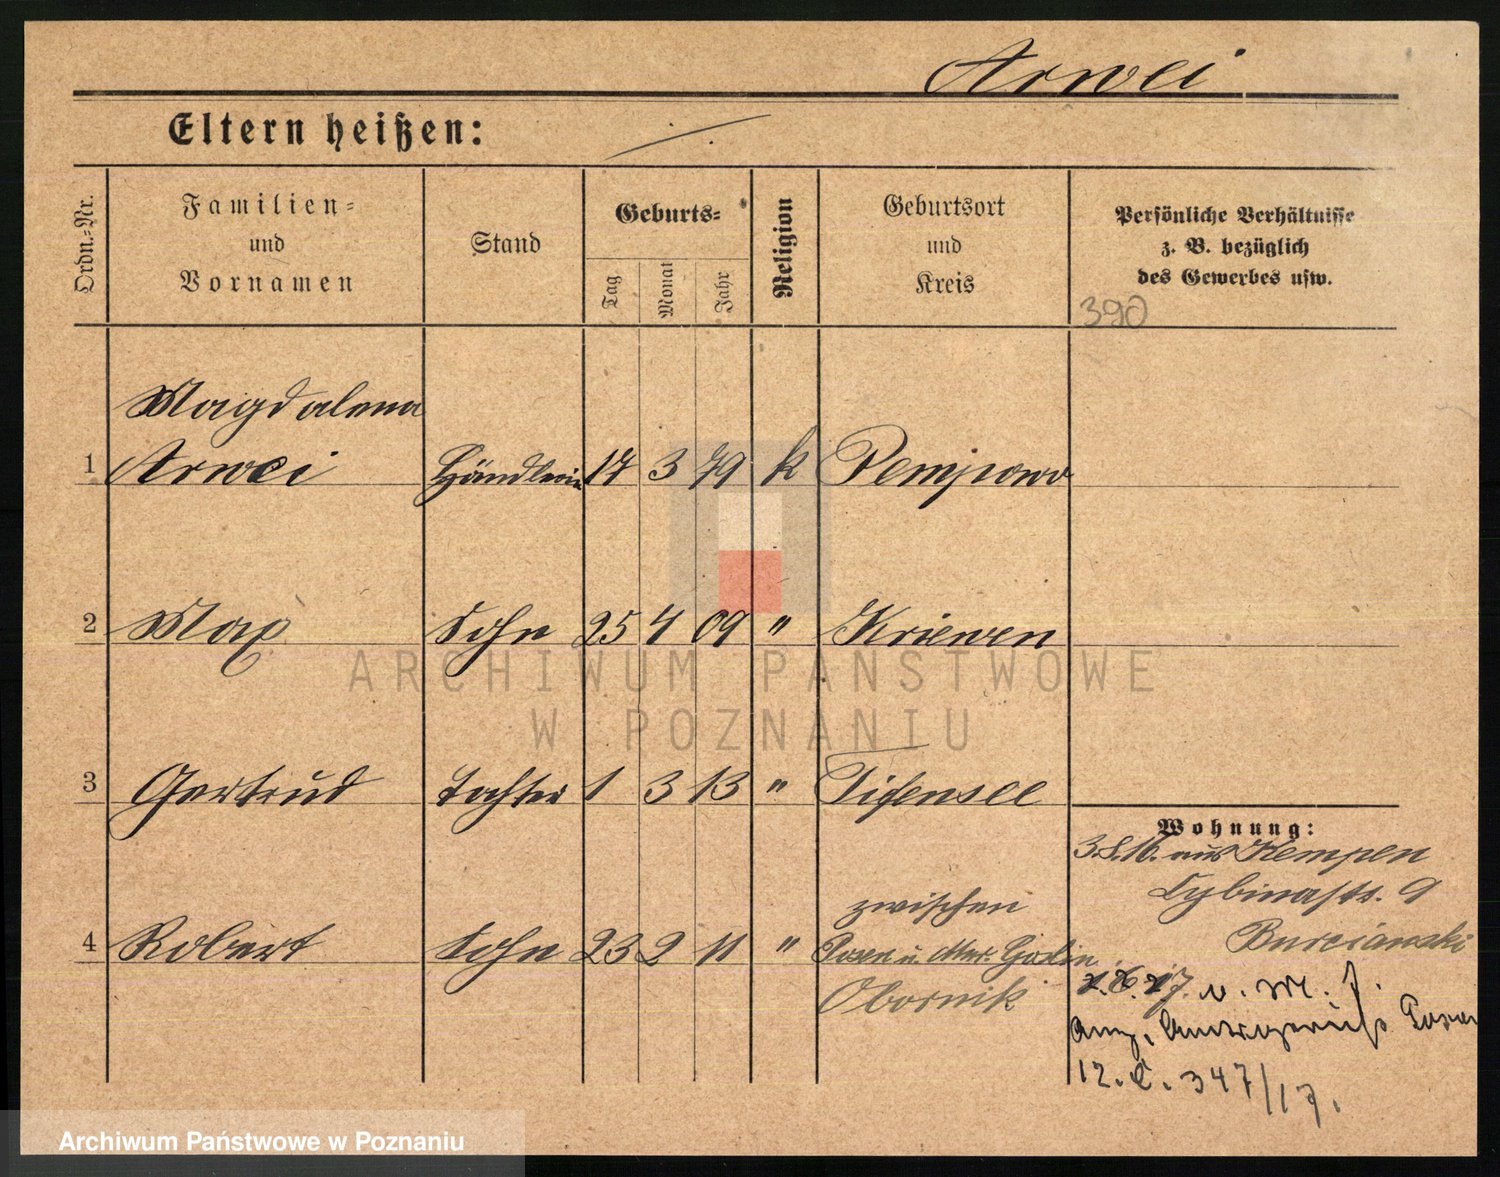 Arwei
Eltern heißen:
Ordn.-Nr.
Familien-
und
Vornamen
Stand
Geburts-
Tag
Monat
Jahr
Religion
Geburtsort
und
Kreis
Persönliche Verhältnisse
z. B. bezüglich
des Gewerbes usw.
390
Magdalena
1 Arwei Händlerin 17 3 79 k Pempowo
2 Max Sohn 25 4 09 " Kriewen
3 Gertrud Tochter 1 3 13 " Tiefensee
Wohnung:
3.8.16. aus Kempen
Cybinastr. 9
zwischen
4 Robert Sohn 23 2 11 " Posen u. Mur. Goslin
Obornik
v. M. J.
Amtsgericht Posen
12. C. 347/17.
ARCHIWUM PAŃSTWOWE
W POZNANIU
Archiwum Państwowe w Poznaniu